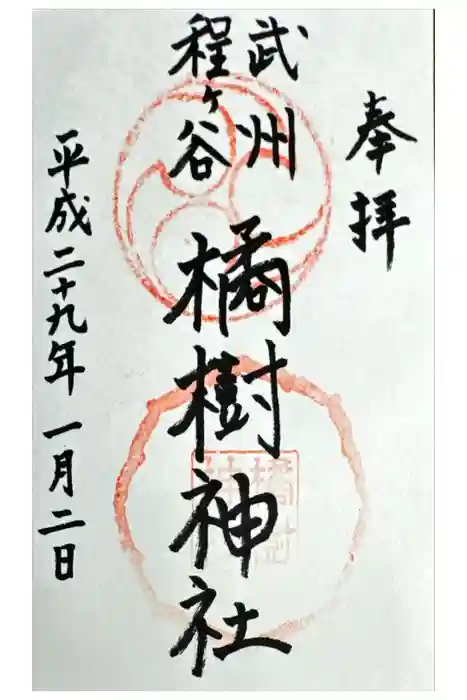 奉拝
武州
程ヶ谷
橘樹神社
平成二十九年一月二日
橘樹
神社